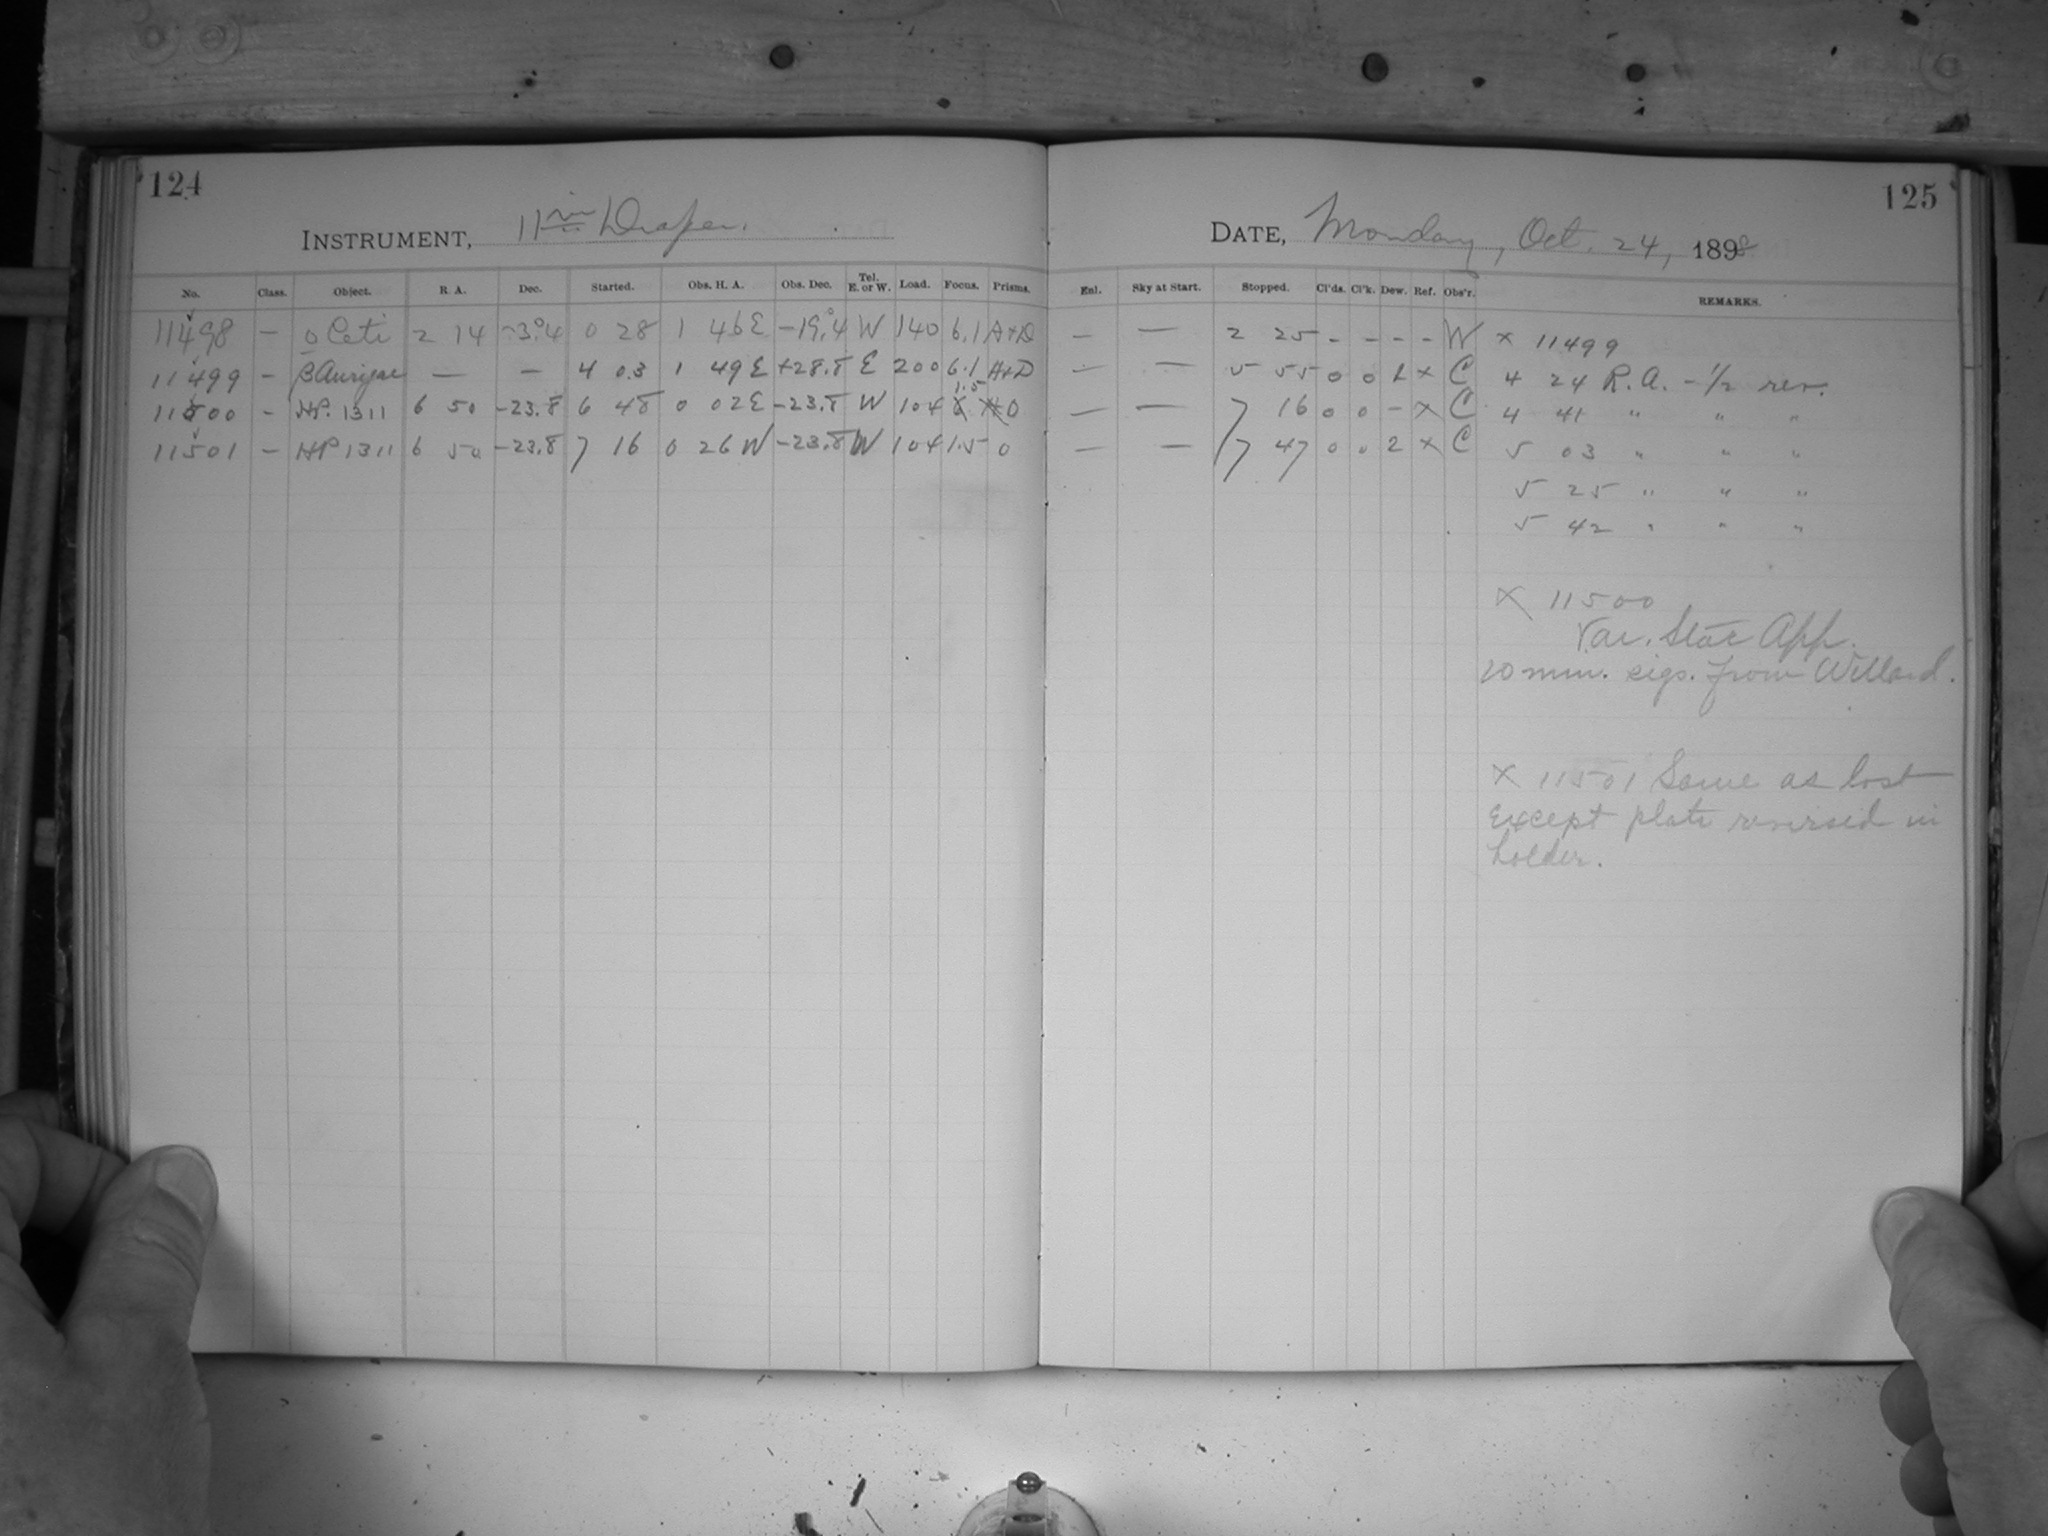 124
INSTRUMENT, 11 in Draper.
No. Class. Object. R. A. Dec. Started. Obs. H. A. Obs. Dec. Tel. E. or W. Load. Focus. Prisms.
11498 — o Ceti 2 14 -3°.4 0 28 1 46 E -19°.4 W 140 6.1 A+D
11499 - β Aurigae — — 4 03 1 49 E +28.8 E 200 6.1 A+D
11500 - HP. 1311 6 50 -23.8 6 48 0 02 E -23.8 W 104 1.5 0
11501 - HP 1311 6 50 -23.8 7 16 0 26 W -23.8 W 104 1.5 0
125
DATE, Monday, Oct. 24, 1898
Enl. Sky at Start. Stopped. Cl'ds. Cl'k. Dew. Ref. Obs'r. REMARKS.
— — 2 25 - - - - W x 11499
— — 5 55 0 0 x C 4 24 R.A. - 1/2 rev.
— — 7 16 0 0 - x C 4 41 " " "
— — 7 47 0 0 2 x C 5 03 " " "
5 25 " " "
5 42 " " "
x 11500
Var. Star App.
20 min. sigs. from Willard.
x 11501 Same as last
except plate reversed in
holder.